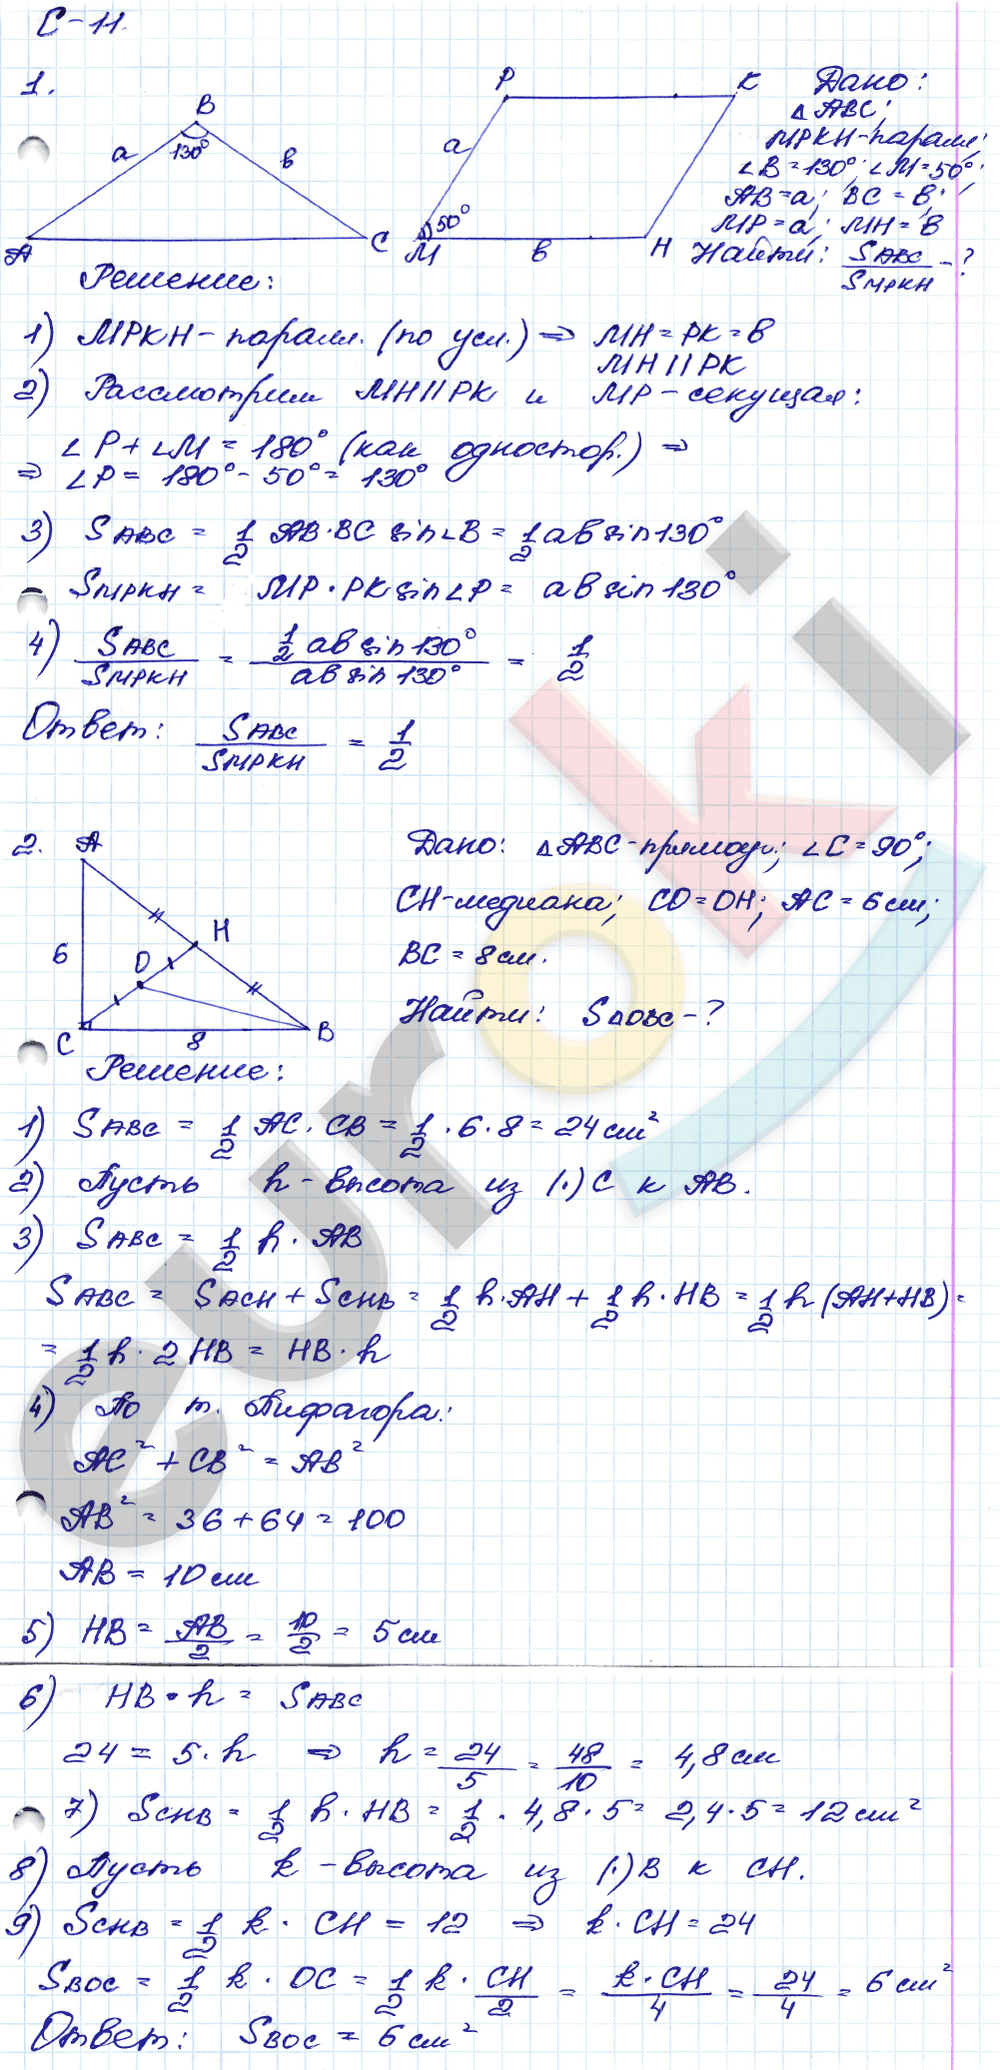 С-11.
1.
B
130°
a
в
A
C
P
K
a
50°
M
в
H
Дано:
△ABC;
MPKH-парал.;
∠B=130°; ∠M=50°;
AB=a; BC=в;
MP=a; MH=в
Найти: SABC/SMPKH - ?
Решение:
1) MPKH - паралл. (по усл.) ⇒ MH = PK = в
MH || PK
2) Рассмотрим MH||PK и MP - секущая:
∠P + ∠M = 180° (как одностор.) ⇒
⇒ ∠P = 180° - 50° = 130°
3) SABC = 1/2 AB·BC sin∠B = 1/2 aв sin130°
SMPKH = MP·PK sin∠P = aв sin130°
4) SABC/SMPKH = 1/2 aв sin130°/aв sin130° = 1/2
Ответ: SABC/SMPKH = 1/2
2.
A
H
6
O
C
8
B
Дано: △ABC-прямоуг.; ∠C=90°;
CH-медиана; CO=OH; AC=6см;
BC=8см.
Найти: S△OBC - ?
Решение:
1) SABC = 1/2 AC·CB = 1/2·6·8 = 24см²
2) Пусть h - высота из (·)C к AB.
3) SABC = 1/2 h·AB
SABC = SACH + SCHB = 1/2 h·AH + 1/2 h·HB = 1/2 h(AH+HB) =
= 1/2 h·2HB = HB·h
4) По т. Пифагора:
AC² + CB² = AB²
AB² = 36+64 = 100
AB = 10см
5) HB = AB/2 = 10/2 = 5см
6) HB·h = SABC
24 = 5·h ⇒ h = 24/5 = 48/10 = 4,8см
7) SCHB = 1/2 h·HB = 1/2·4,8·5 = 2,4·5 = 12см²
8) Пусть k - высота из (·)B к CH.
9) SCHB = 1/2 k·CH = 12 ⇒ k·CH = 24
SBOC = 1/2 k·OC = 1/2 k·CH/2 = k·CH/4 = 24/4 = 6см²
Ответ: SBOC = 6см²
euroki